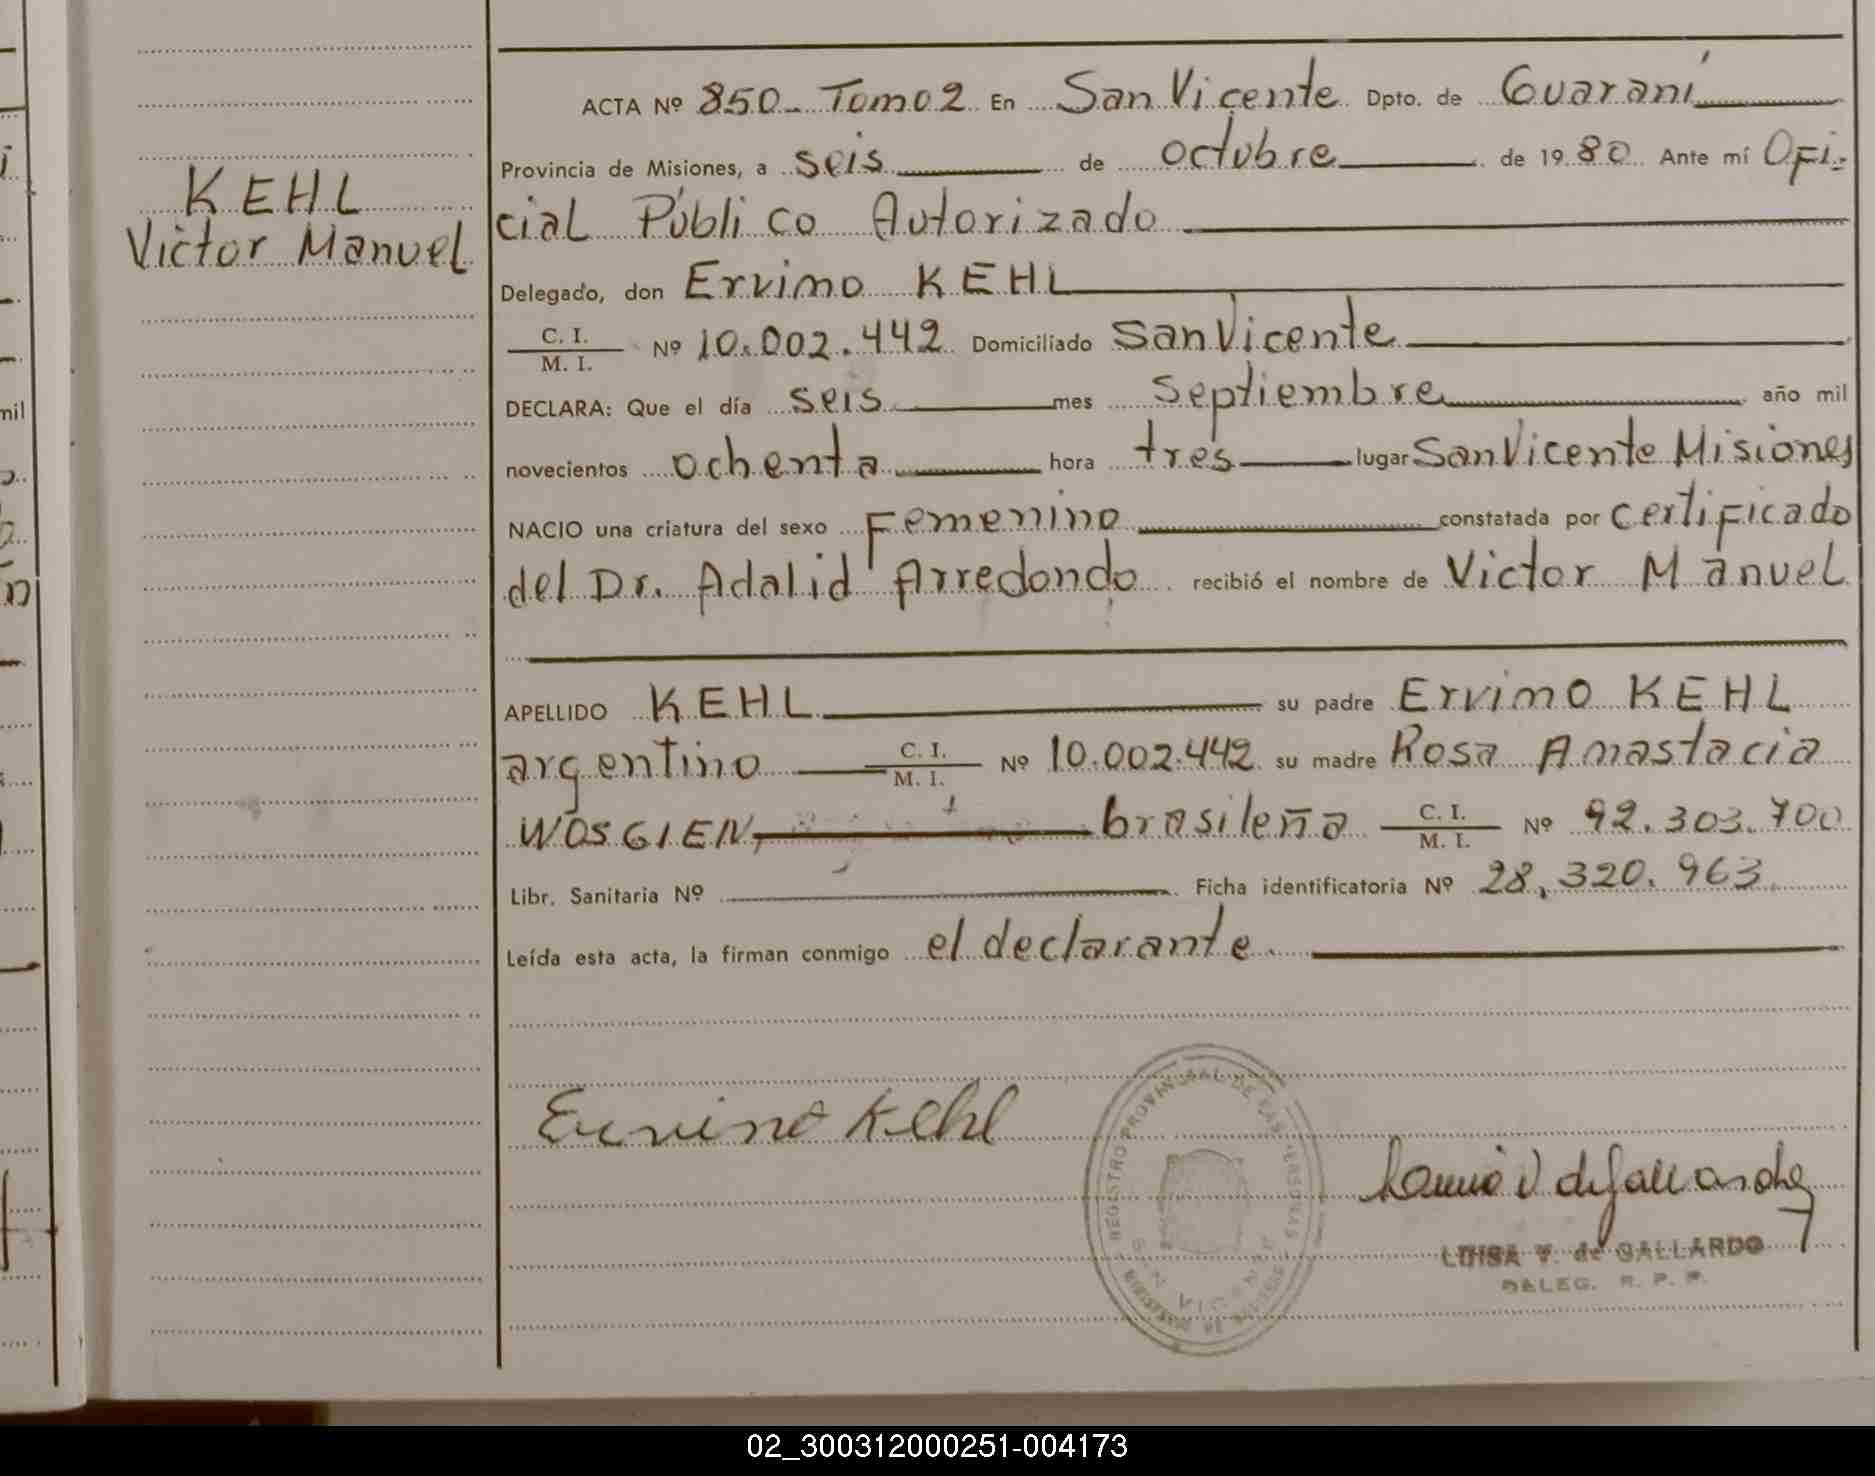 KEHL
Victor Manuel
ACTA Nº 850- Tomo 2 En San Vicente Dpto. de Guaraní
Provincia de Misiones, a seis de octubre de 1980 Ante mí Ofi-
cial Público Autorizado
Delegado, don Ervino KEHL
C. I.
M. I. Nº 10.002.442 Domiciliado San Vicente
DECLARA: Que el día seis mes septiembre año mil
novecientos ochenta hora tres lugar San Vicente Misiones
NACIO una criatura del sexo Femenino constatada por certificado
del Dr. Adalid Arredondo recibió el nombre de Victor Manuel
APELLIDO KEHL su padre Ervino KEHL
argentino C. I.
M. I. Nº 10.002.442 su madre Rosa Anastacia
WOSGIEN, brasileña C. I.
M. I. Nº 92.303.700
Libr. Sanitaria Nº Ficha identificatoria Nº 28.320.963
Leída esta acta, la firman conmigo el declarante.
Ervino Kehl
REGISTRO PROVINCIAL DE LAS PERSONAS
LUISA V. de GALLARDO
DELEG. R. P. P.
02_300312000251-004173